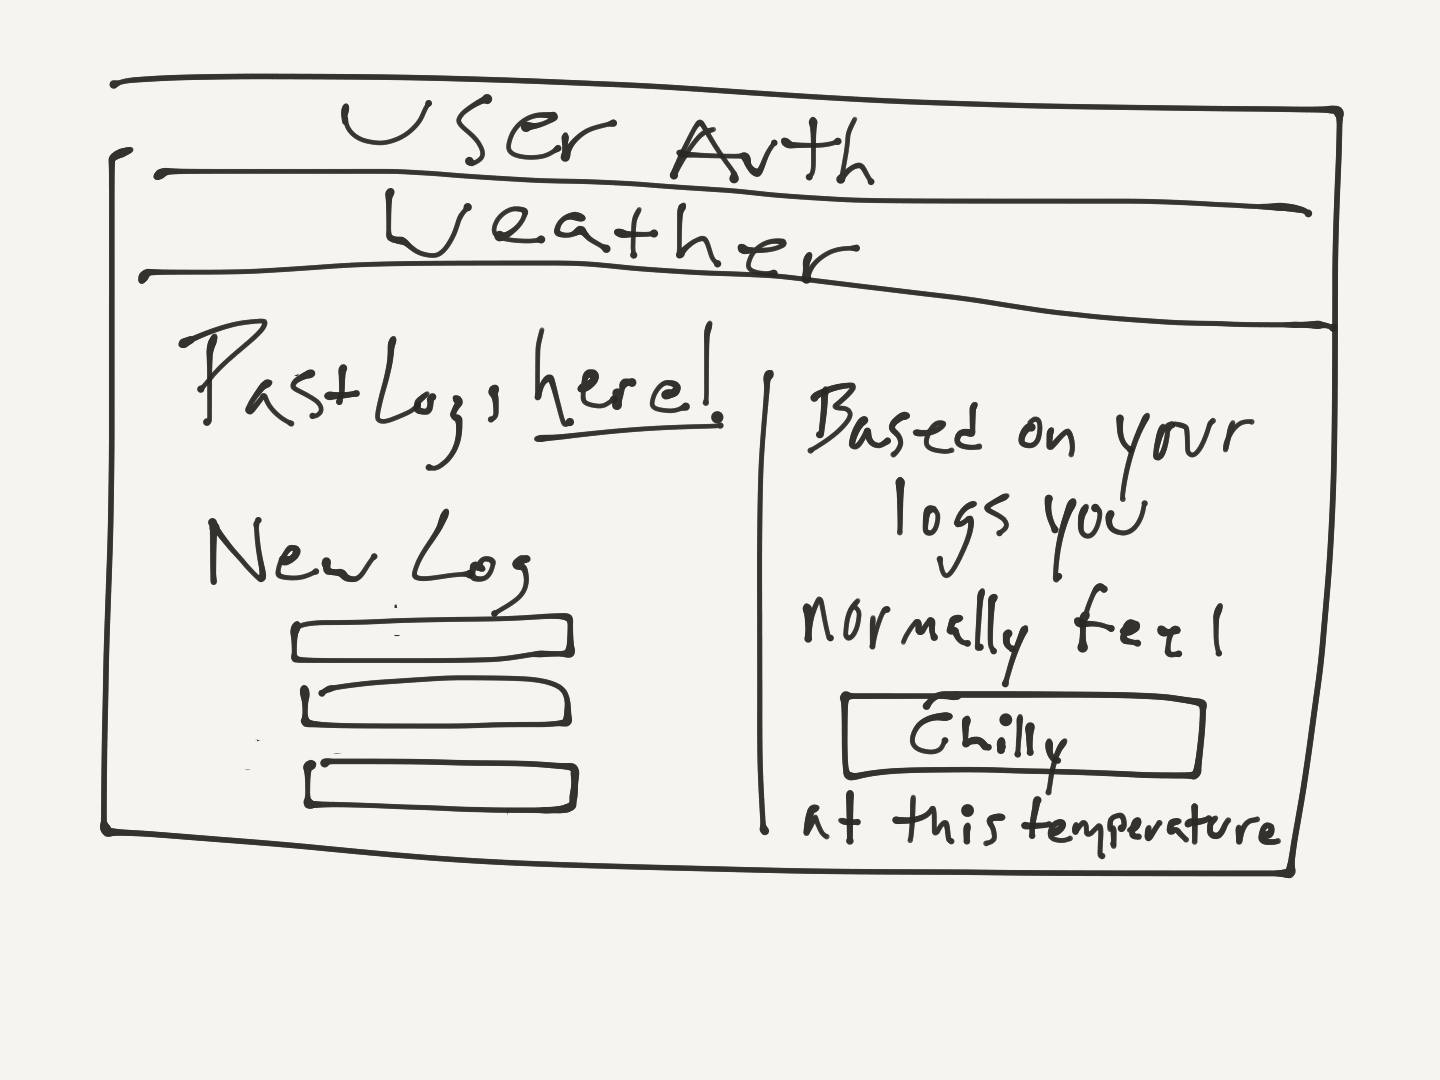 User Auth
Weather
Past Logs here!
New Log
Based on your
logs you
Normally feel
Chilly
at this temperature